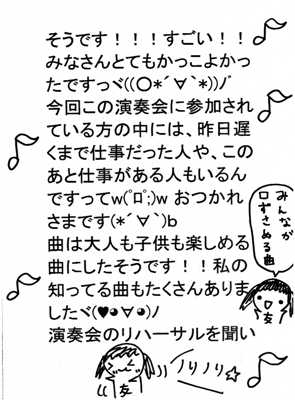 そうです！！！すごい！！
みなさんとてもかっこよかっ
たですっヾ((○*´∀｀*))ﾉﾞ
今回この演奏会に参加され
ている方の中には、昨日遅
くまで仕事だった人や、この
あと仕事がある人もいるん
ですってw(ﾟﾛﾟ;)w おつかれ
さまです(*´∀｀)b
曲は大人も子供も楽しめる
曲にしたそうです！！私の
知ってる曲もたくさんありま
したヾ(♥◕∀◕)ﾉ
演奏会のリハーサルを聞い
みんなが
口ずさめる曲
友
友
ノリノリ☆